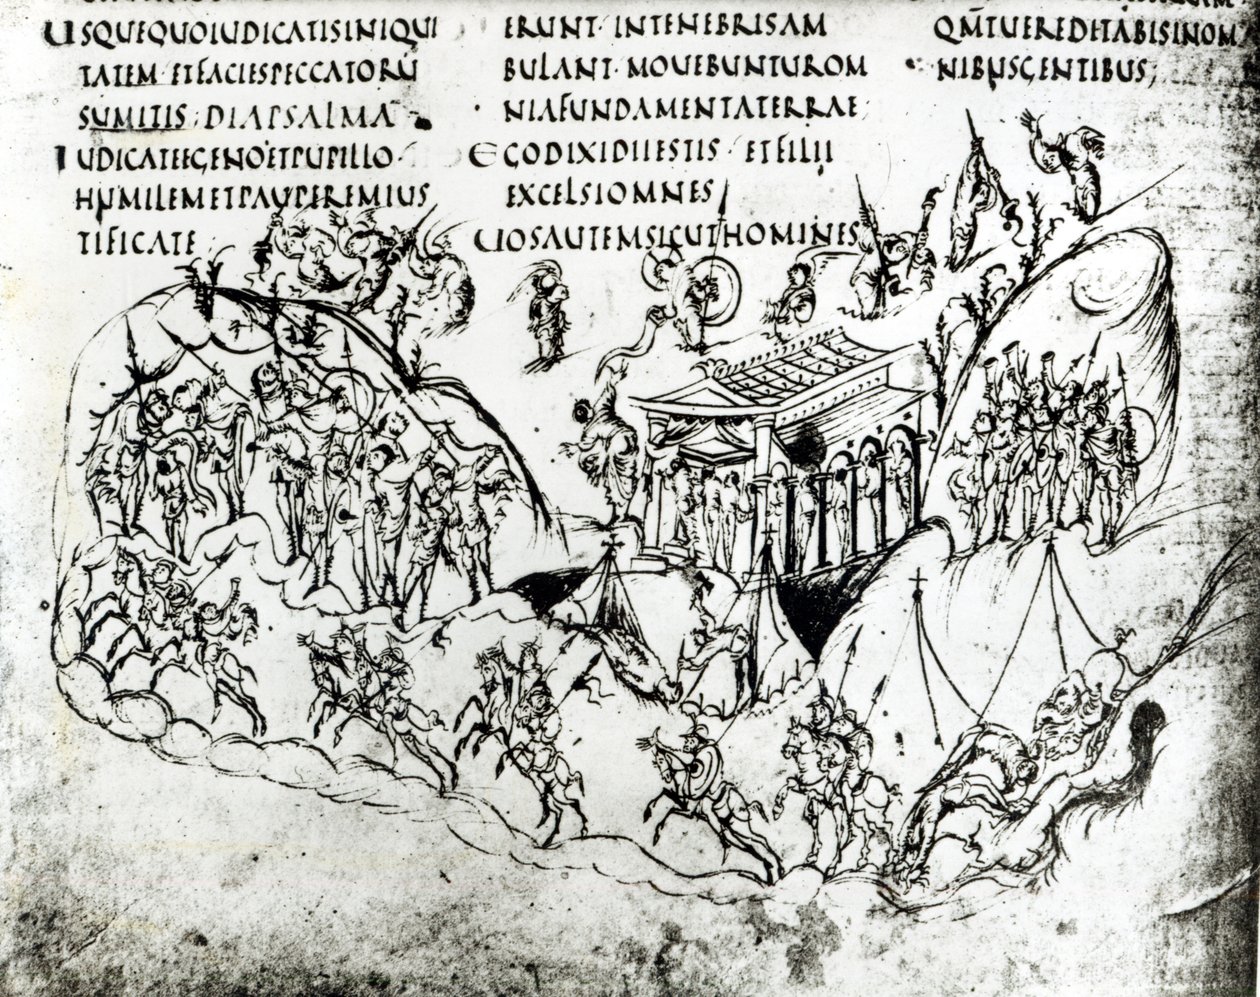 USQUEQUOIUDICATISINIQUI
TATEM·ETFACIESPECCATORŪ
SUMITIS;DIAPSALMA
IUDICATEEGENO·ETPUPILLO·
HUMILEMETPAUPEREMIUS
TIFICATE;
ERUNT·INTENEBRISAM
BULANT·MOUEBUNTUROM
NIAFUNDAMENTATERRAE;
EGODIXIDIIESTIS·ETFILII
EXCELSIOMNES
UOSAUTEMSICUTHOMINES
QM̄TUEREDITABISINOM
NIBUSGENTIBUS;